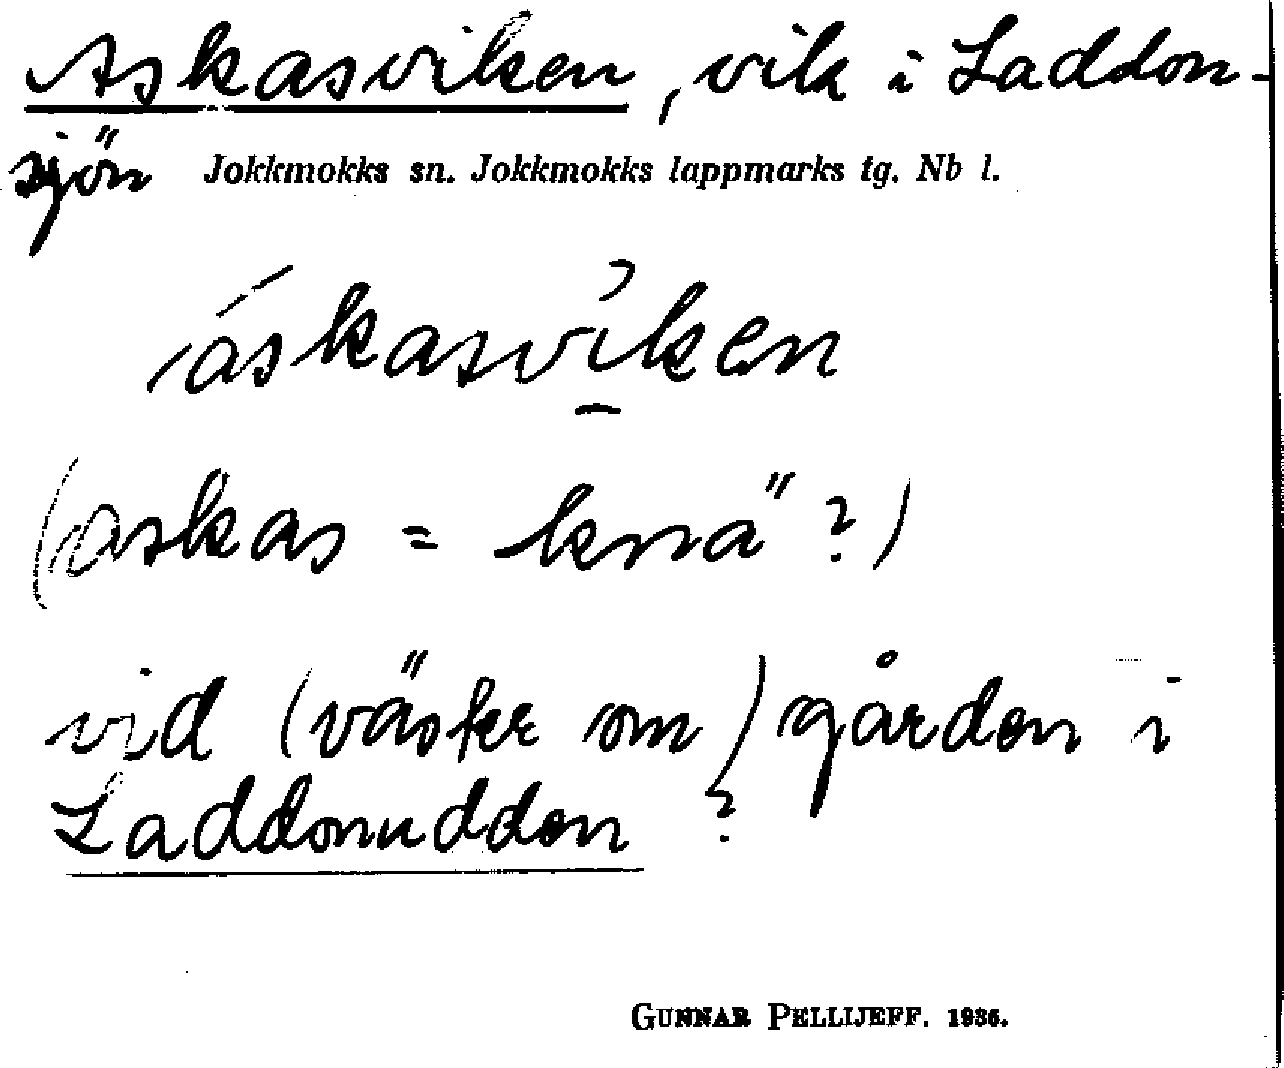 Askasviken, vik i Laddon-
sjön Jokkmokks sn. Jokkmokks lappmarks tg. Nb l.
áskasviken
(askas = knä ?)
vid (väster om) gården i
Laddonudden ?
GUNNAR PELLIJEFF. 1936.